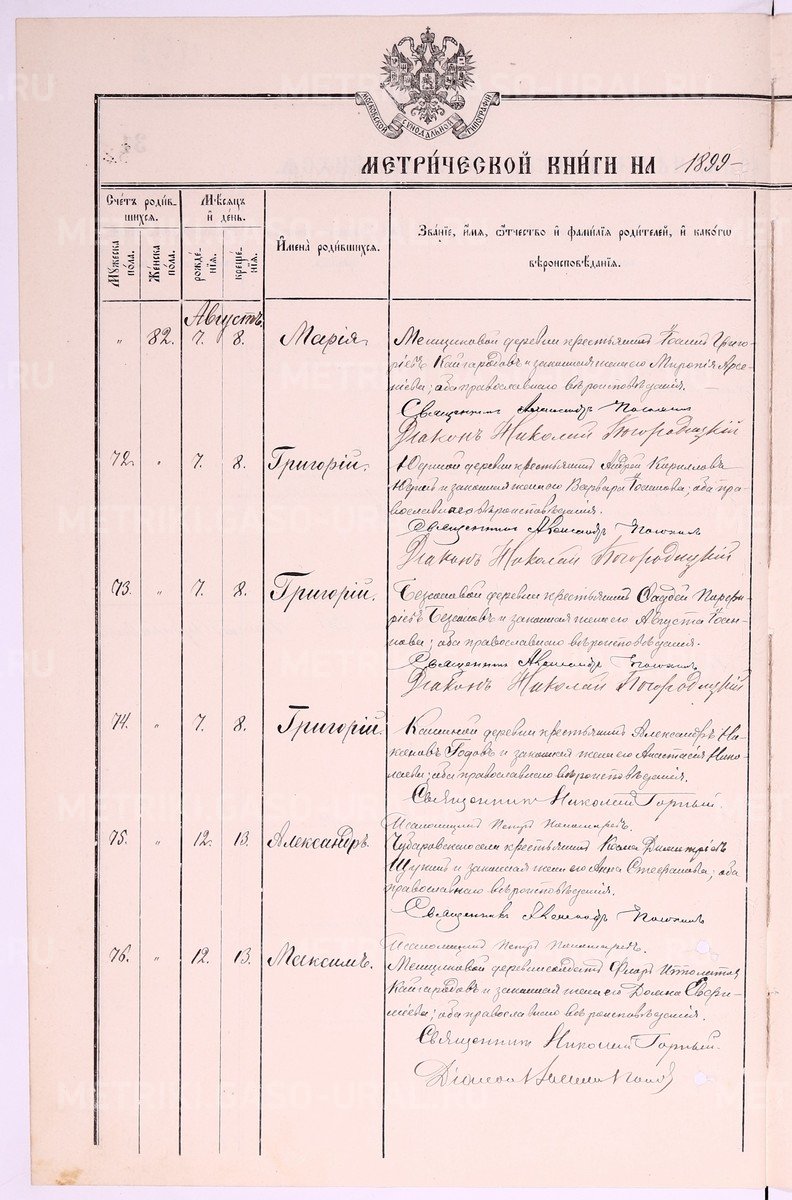 МОСКОВСКОЙ СѴНОДАЛЬНОЙ ТИПОГРАФІИ
МЕТРИ́ЧЕСКОЙ КНИ́ГИ НА 1899
Сче́тъ роди́в-
шихся.
Му́жеска пола.
Же́нска пола.
Мѣ́сяцъ
и҆ де́нь.
рожде́-
нія.
креще́-
нія.
И҆мена̀ роди́вшихся.
Зва́ніе, и҆́мя, ѻ҆́тчество и҆ фами́лія роди́телей, и҆ како́гѡ
вѣроисповѣ́данія.
Августъ.
" 82. 7. 8. Марія. Менщиковой деревни крестьянинъ Іоаннъ Григо-
ріевъ Кайгародовъ и законная жена его Миропія Арсе-
ніева; оба православнаго вѣроисповѣданія.
Священникъ Александръ
Діаконъ Николай Богородицкій
72. " 7. 8. Григорій. Юдиной деревни крестьянинъ Андрей Кирилловъ
Юдинъ и законная жена его Варвара Іоаннова; оба пра-
вославнаго вѣроисповѣданія.
Священникъ Александръ
Діаконъ Николай Богородицкій
73. " 7. 8. Григорій. Безсоновой деревни крестьянинъ Фаддей Парфе-
ніевъ Безсоновъ и законная жена его Августа Іоан-
нова; оба православнаго вѣроисповѣданія.
Священникъ Александръ
Діаконъ Николай Богородицкій
74. " 7. 8. Григорій. деревни крестьянинъ Александръ Ни-
Годовъ и законная жена его Анастасія Нико-
лаева; оба православнаго вѣроисповѣданія.
Священникъ Николай Горный.
Псаломщикъ Петръ Пономаревъ.
75. " 12. 13. Александръ. Чубаровскаго села крестьянинъ Косма Димитріевъ
Щукинъ и законная жена его Анна Стефанова; оба
православнаго вѣроисповѣданія.
Священникъ Александръ
Псаломщикъ Петръ Пономаревъ.
76. " 12. 13. Максимъ. Менщиковой деревни солдатъ Флоръ Ипполитовъ
Кайгародовъ и законная жена его Домна Евфи-
міева; оба православнаго вѣроисповѣданія.
Священникъ Николай Горный.
Діаконъ Василій Поповъ